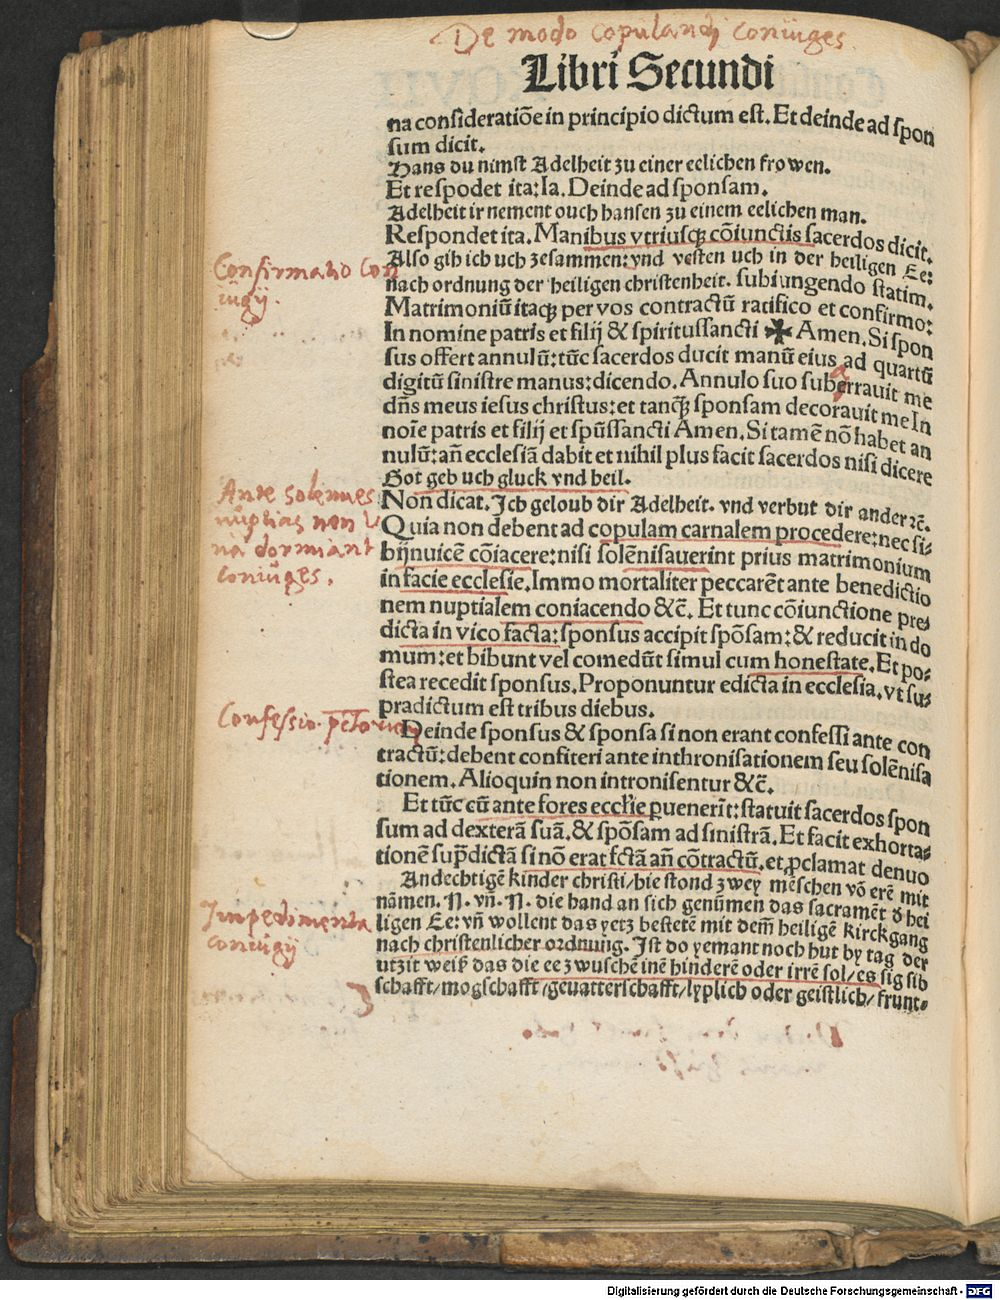 De modo copulandi coniuges
Libri Secundi
na consideratiōe in principio dictum est. Et deinde ad spon
sum dicit.
Hans du nimst Adelheit zu einer eelichen frowen.
Et respōdet ita: Ia. Deinde ad sponsam.
Adelheit ir nement ouch hansen zu einem eelichen man.
Respondet ita. Manibus vtriusqꝫ cōiunctis sacerdos dicit.
Also gib ich uch zesammen: vnd vesten uch in der heiligen Ee:
nach ordnung der heiligen christenheit. subiungendo statim.
Confirmatio con
iugij.
Matrimoniū itaqꝫ per vos contractū ratifico et confirmo:
In nomine patris et filij & spiritussancti ✠ Amen. Si spon
sus offert annulū: tūc sacerdos ducit manū eius ad quartū
digitū sinistre manus: dicendo. Annulo suo suberrauit me
a
dn̄s meus iesus christus: et tanqꝫ sponsam decorauit me In
noīe patris et filij et spūssancti Amen. Si tamē nō habet an
nulū: an̄ ecclesiā dabit et nihil plus facit sacerdos nisi dicere
Got geb uch gluck vnd heil.
Non dicat. Ich geloub dir Adelheit. vnd verbut dir ander ꝛc̄.
Ante solennes
nuptias non
dormiant
coniuges.
Quia non debent ad copulam carnalem procedere: nec si-
bijnuicē cōiacere: nisi solēnisauerint prius matrimonium
in facie ecclesie. Immo mortaliter peccarēt ante benedictio
nem nuptialem coniacendo &c̄. Et tunc cōiunctione pre-
dicta in vico facta: sponsus accipit spōsam: & reducit in do
mum: et bibunt vel comedūt simul cum honestate. Et po-
stea recedit sponsus. Proponuntur edicta in ecclesia, vt su-
pradictum est tribus diebus.
Confessio pctorum
Deinde sponsus & sponsa si non erant confessi ante con
tractū: debent confiteri ante inthronisationem seu solēnisa
tionem. Alioquin non intronisentur &c̄.
Et tūc cū ante fores eccl'ie ꝑuenerīt: statuit sacerdos spon
sum ad dexterā suā. & spōsam ad sinistrā. Et facit exhorta-
tionē sup̄dictā si nō erat fctā an̄ cōtractū. et ꝓclamat denuo
Andechtigē kinder christi/ hie stond zwey mēschen vō erē mit
Impedimenta
coniugij
nāmen. N. vn̄. N. die hand an sich genūmen das sacramēt ð hei
ligen Ee: vn̄ wollent das yetz bestetē mit dem̄ heiligē kirckgang
nach christenlicher ordnung. Ist do yemant noch hut by tag der
utzit weiß das die ee zwuschē inē hinderē oder irrē sol/ es sig sib
schafft/ mogschafft/ geuatterschafft/ lyplich oder geistlich/ frunt-
Digitalisierung gefördert durch die Deutsche Forschungsgemeinschaft - DFG